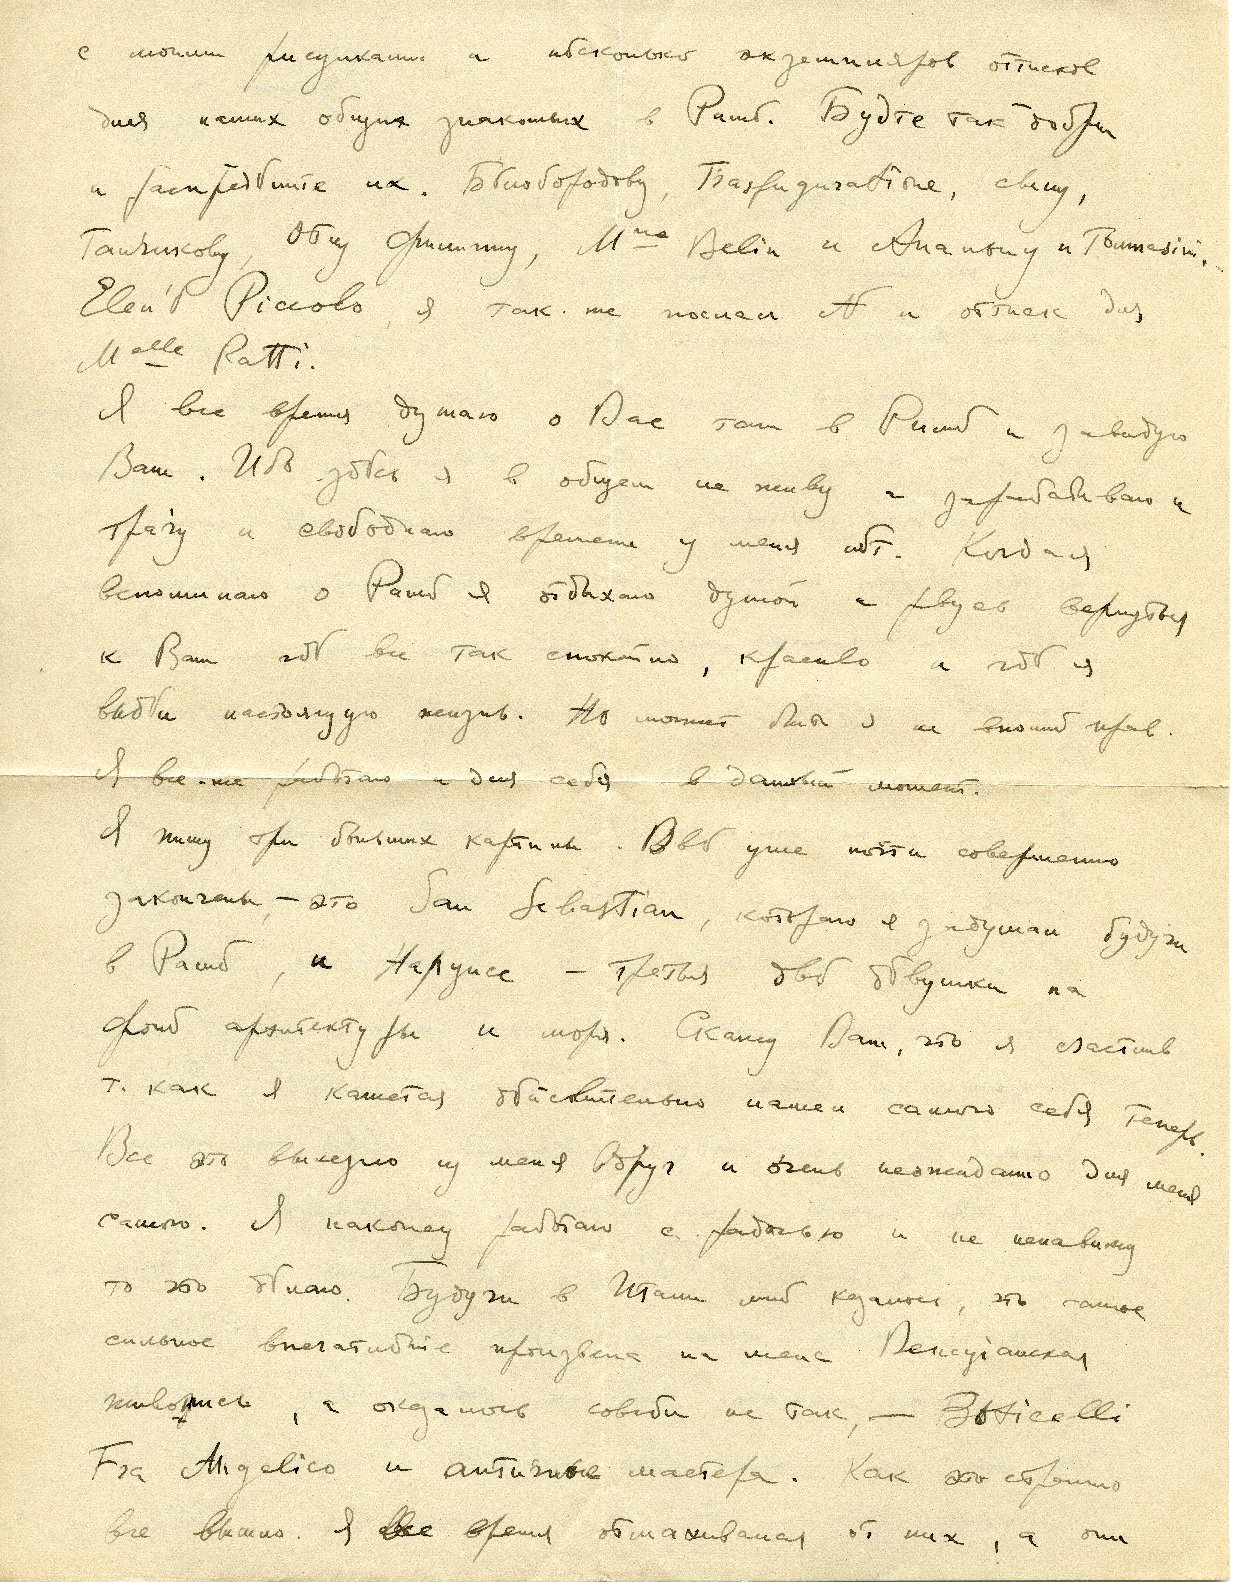 с моими рисунками и нѣсколько экземпляров оттисков
для наших общих знакомых в Римѣ. Будте так добры
и распредѣлите их. Бѣлобородову, Trasfiguratione,
Ганчикову, Mme Belin и Ананьину и Tommasini,
Elen'ѣ Piccolo, я так-же послал № и оттиск для
Melle Ratti.
Я все время думаю о Вас там в Римѣ и завидую
Вам. Ибо здѣсь я в общем не живу а зарабатываю и
трачу и свободнаго времени у меня нѣт. Когда я
вспоминаю о Римѣ я отдыхаю душой и рвусь вернуться
к Вам гдѣ все так спокойно, красиво и гдѣ я
видѣл настоящую жизнь. Но может быть я не вполнѣ прав.
Я все-же работаю и для себя в данный момент.
Я пишу три больших картины. Двѣ уже почти совершенно
закончены, — это San Sebastian, котораго я задумал будучи
в Римѣ, и Нарцисс — третья двѣ дѣвушки на
фонѣ архитектуры и моря. Скажу Вам, что я счастлив
т. как я кажется дѣйствительно нашел самого себя теперь.
Все это вылезло из меня вдруг и очень неожиданно для меня
самого. Я наконец работаю с радостью и не ненавижу
то что дѣлаю. Будучи в Италии мнѣ казалось, что самое
сильное впечатлѣние произвела на меня Венецианская
живопись, а оказалось совсѣм не так, — Botticelli
Fra Angelico и античные мастера. Как это странно
все вышло. Я все время отмахивался от них, а они